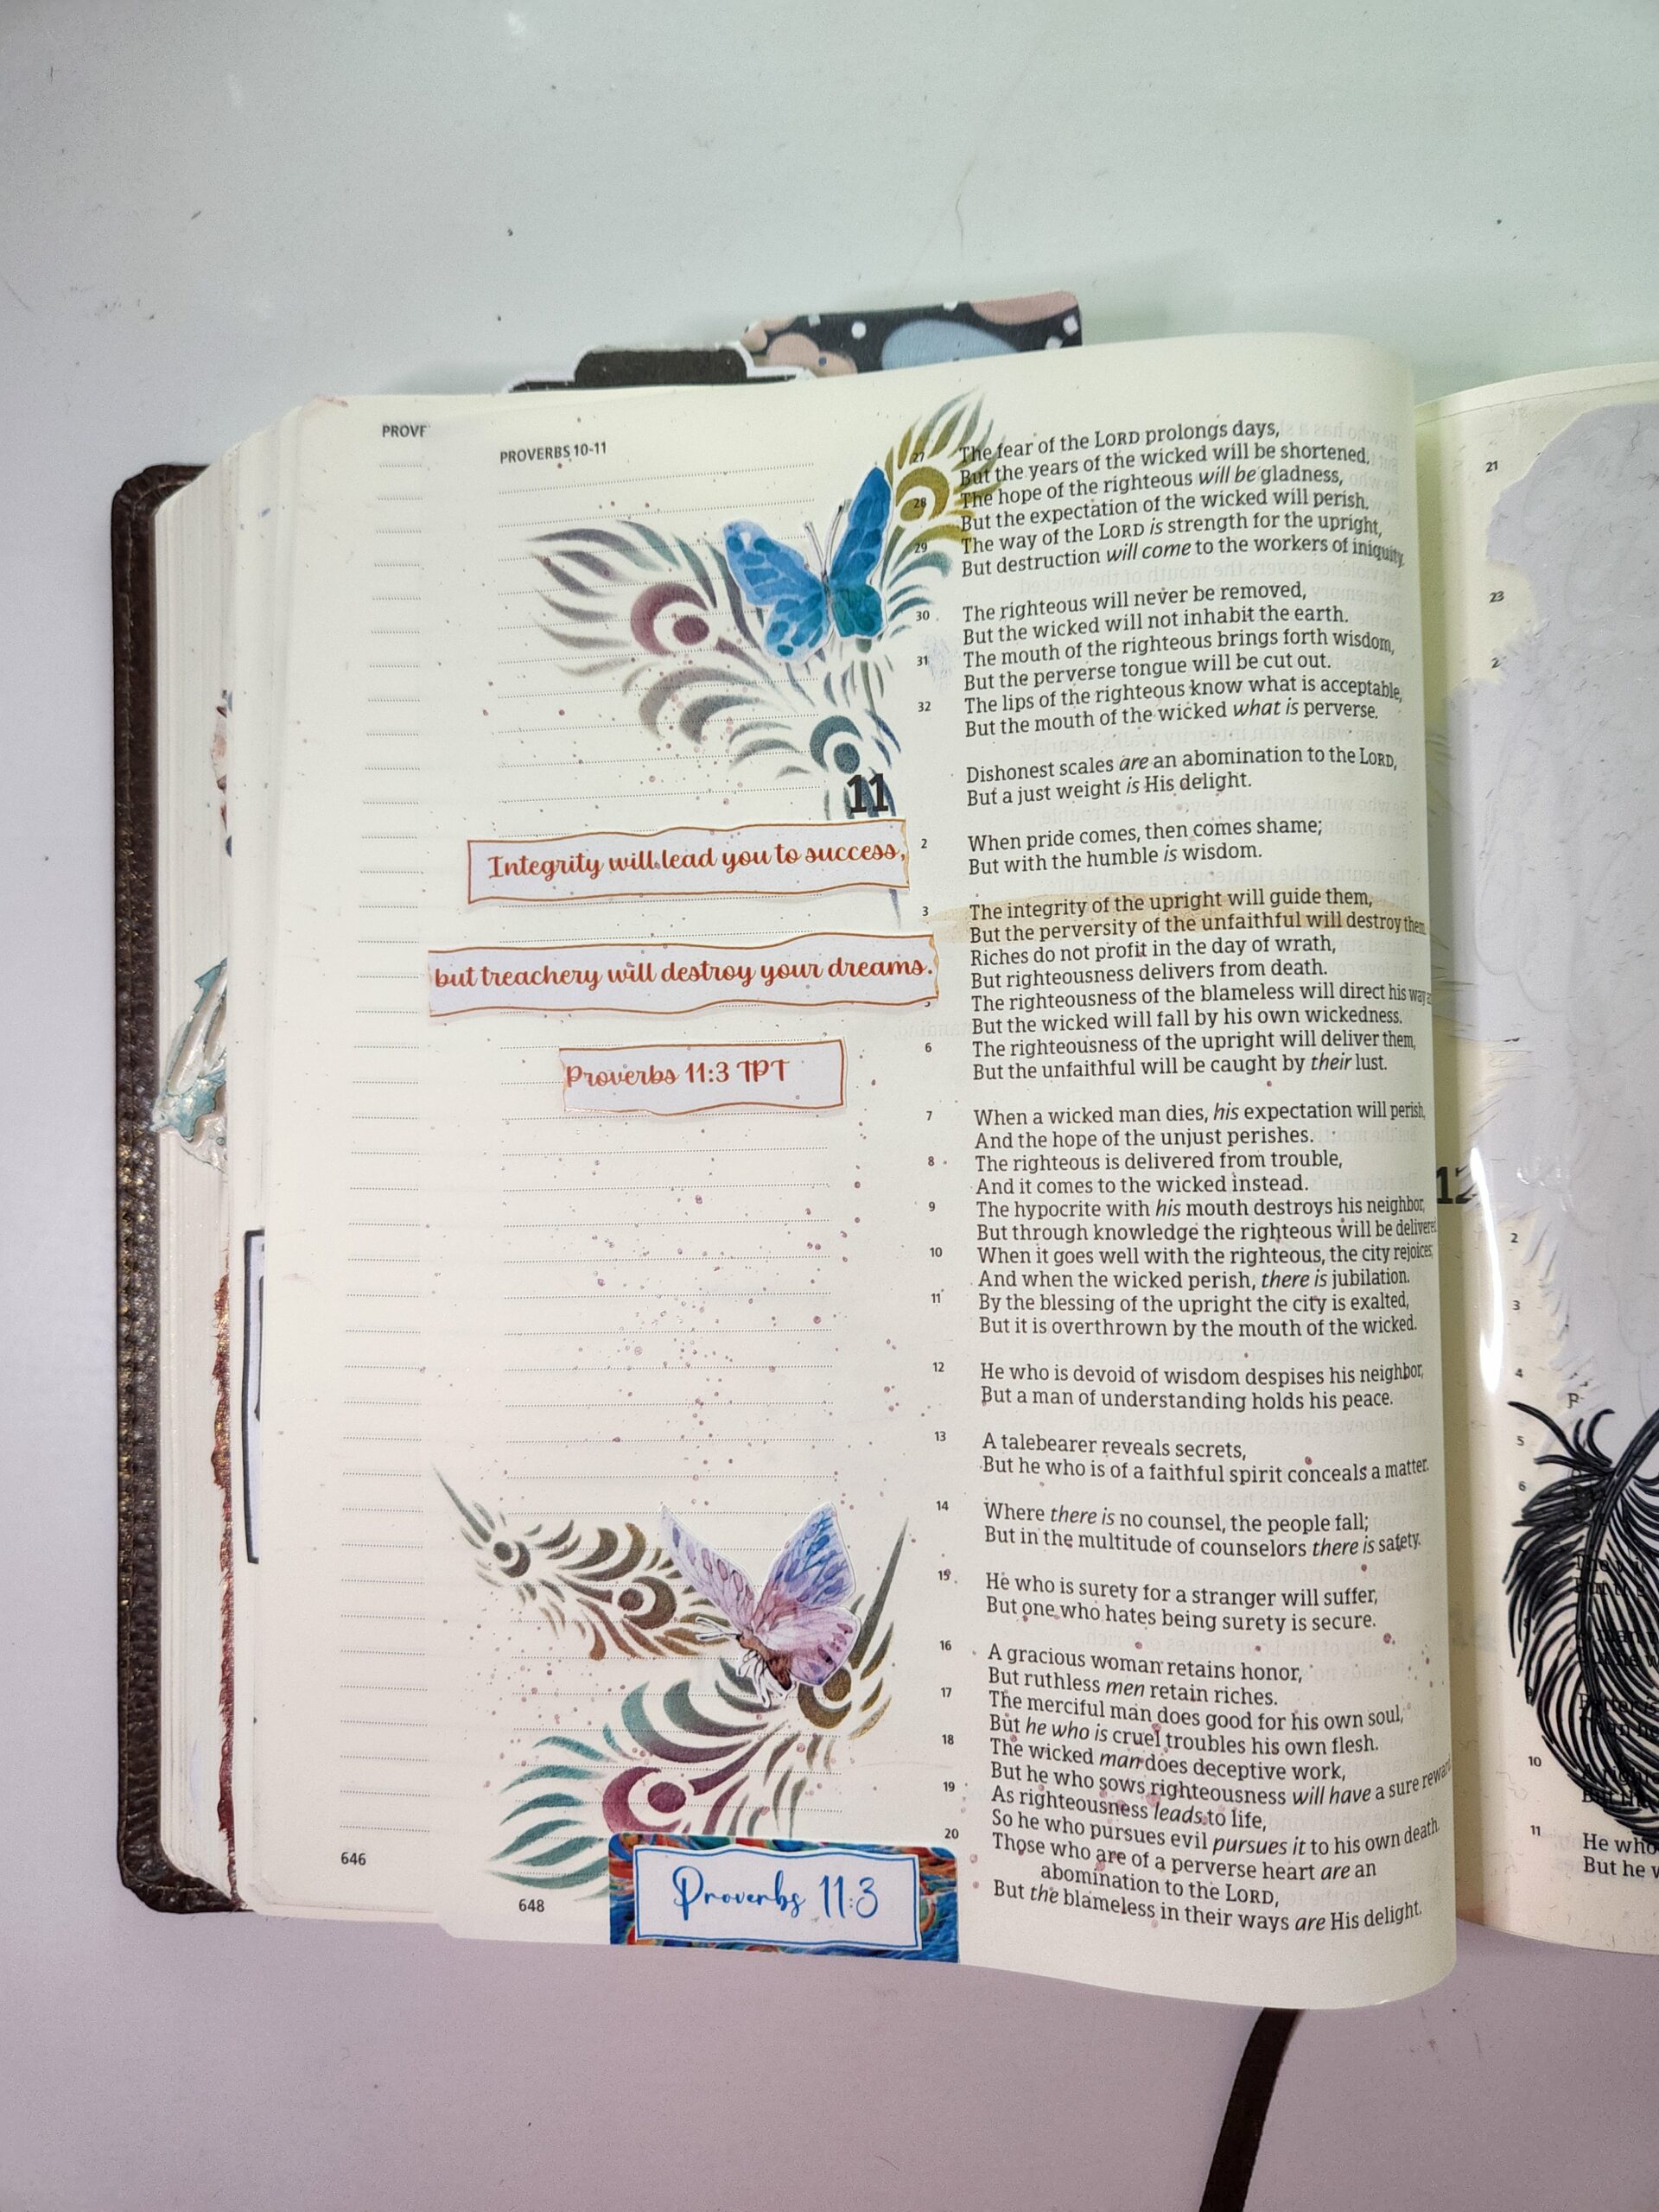 PROVE
PROVERBS 10-11
27 The fear of the LORD prolongs days,
But the years of the wicked will be shortened.
28 The hope of the righteous will be gladness,
But the expectation of the wicked will perish.
29 The way of the LORD is strength for the upright,
But destruction will come to the workers of iniquity.
30 The righteous will never be removed,
But the wicked will not inhabit the earth.
31 The mouth of the righteous brings forth wisdom,
But the perverse tongue will be cut out.
32 The lips of the righteous know what is acceptable,
But the mouth of the wicked what is perverse.
11 Dishonest scales are an abomination to the LORD,
But a just weight is His delight.
2 When pride comes, then comes shame;
But with the humble is wisdom.
3 The integrity of the upright will guide them,
But the perversity of the unfaithful will destroy them.
Riches do not profit in the day of wrath,
But righteousness delivers from death.
The righteousness of the blameless will direct his way
But the wicked will fall by his own wickedness.
6 The righteousness of the upright will deliver them,
But the unfaithful will be caught by their lust.
7 When a wicked man dies, his expectation will perish,
And the hope of the unjust perishes.
8 The righteous is delivered from trouble,
And it comes to the wicked instead.
9 The hypocrite with his mouth destroys his neighbor,
But through knowledge the righteous will be delivered
10 When it goes well with the righteous, the city rejoices;
And when the wicked perish, there is jubilation.
11 By the blessing of the upright the city is exalted,
But it is overthrown by the mouth of the wicked.
12 He who is devoid of wisdom despises his neighbor,
But a man of understanding holds his peace.
13 A talebearer reveals secrets,
But he who is of a faithful spirit conceals a matter.
14 Where there is no counsel, the people fall;
But in the multitude of counselors there is safety.
15 He who is surety for a stranger will suffer,
But one who hates being surety is secure.
16 A gracious woman retains honor,
But ruthless men retain riches.
17 The merciful man does good for his own soul,
But he who is cruel troubles his own flesh.
18 The wicked man does deceptive work,
But he who sows righteousness will have a sure reward
19 As righteousness leads to life,
So he who pursues evil pursues it to his own death.
20 Those who are of a perverse heart are an
abomination to the LORD,
But the blameless in their ways are His delight.
Integrity will lead you to success,
but treachery will destroy your dreams.
Proverbs 11:3 TPT
Proverbs 11:3
646
648
21
23
12
2
3
4
5
6
10
11 He who
But he